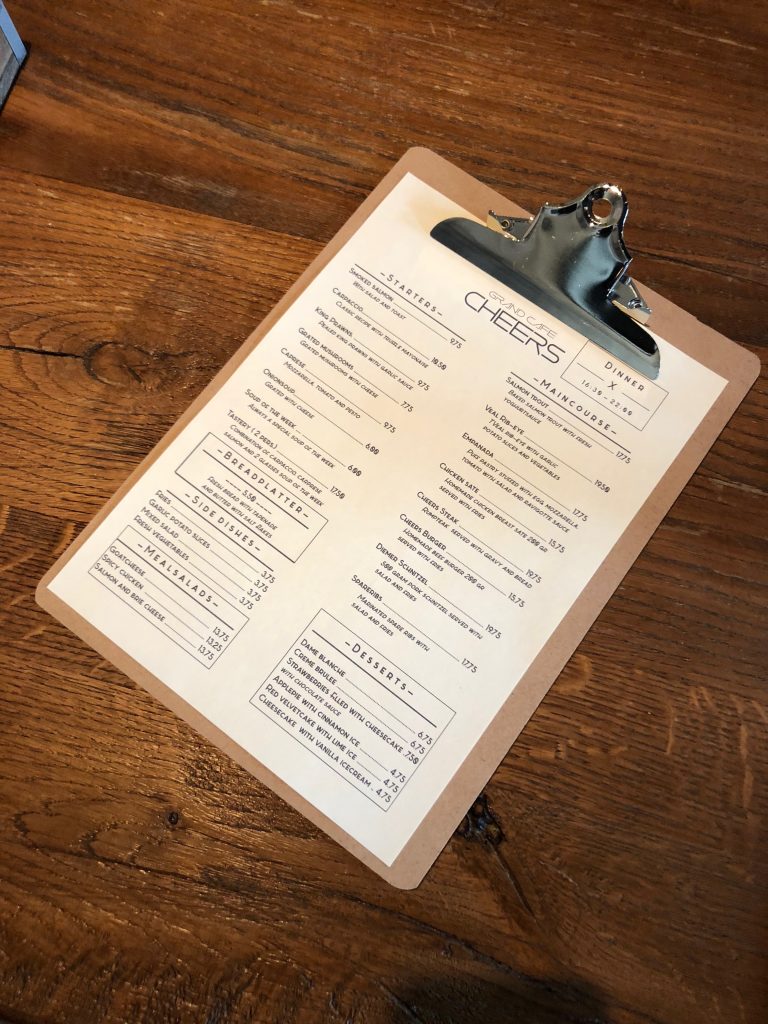 GRAND CAFE
CHEERS
DINNER
X
16.30 – 22.00
–STARTERS–
SMOKED SALMON 975
WITH SALAD AND TOAST
CARDACCIO 1050
CLASSIC RECIPE WITH TRUBLE MAYONAISE
KING PRAWNS 975
PEALED KING PRAWNS WITH GARLIC SAUCE
GRATED MUSHROOMS 775
GRATED MUSHROOMS WITH CHEESE
CAPRESE 975
MOZZARELLA, TOMATO AND PESTO
ONIONSOUP 6.00
GRATED WITH CHEESE
SOUP OF THE WEEK 6.00
ALWAYS A SPECIAL SOUP OF THE WEEK
TASTERY ( 2 PERS.) 1750
COMBINATION OF CARDACCIO, CARPRESE
SALMON AND 2 GLASSES SOUP OF THE WEEK
–BREADPLATTER–
5.50
FRESH BREAD WITH TAPENADE
AND BUTTER WITH SALT FLAKES
–SIDE DISHES–
FRIES 3.75
GARLIC POTATO SLICES 3.75
MIXED SALAD 3.75
FRESH VEGUETABLES 3.75
–MEALSALADS–
GOATCHEESE 13.75
SPICY CHICKEN 13.25
SALMON AND BRIE CHEESE 13.75
–MAINCOURSE–
SALMON TROUT 1775
BAKED SALMON TROUT WITH FRESH
YOGHURTSAUCE
VEAL RIB-EYE 1950
VEAL RIB-EYE WITH GARLIC
POTATO SLICES AND VEGETABLES
EMPANADA 1775
PUFF PASTRY STUFFED WITH EGG, MOZZARELLA,
TOMATO WITH SALAD AND RAVIGOTTE SAUCE
CHICKEN SATE 15.75
HOMEMADE CHICKEN BREAST SATE 200 GR
SERVED WITH FRIES
CHEERS STEAK 1975
RUMSTEAK SERVED WITH GRAVY AND BREAD
CHEERS BURGER 15.75
HOMEMADE BEEF BURGER 200 GR
SERVED WITH FRIES
DIEMER SCHNITZEL 1975
300 GRAM PORK SCHNITZEL SERVED WITH
SALAD AND FRIES
SPARERIBS 1775
MARINATED SPARE RIBS WITH
SALAD AND FRIES
–DESSERTS–
DAME BLANCHE 6.75
CREME BRULEE 6.75
STRAWBERRIES FILLED WITH CHEESECAKE .750
WITH CHOCOLATE SAUCE
APPLEPIE WITH CINNAMON ICE 4.75
RED VELVETCAKE WITH LIME ICE 4.75
CHEESECAKE WITH VANILLA ICECREAM . 4.75